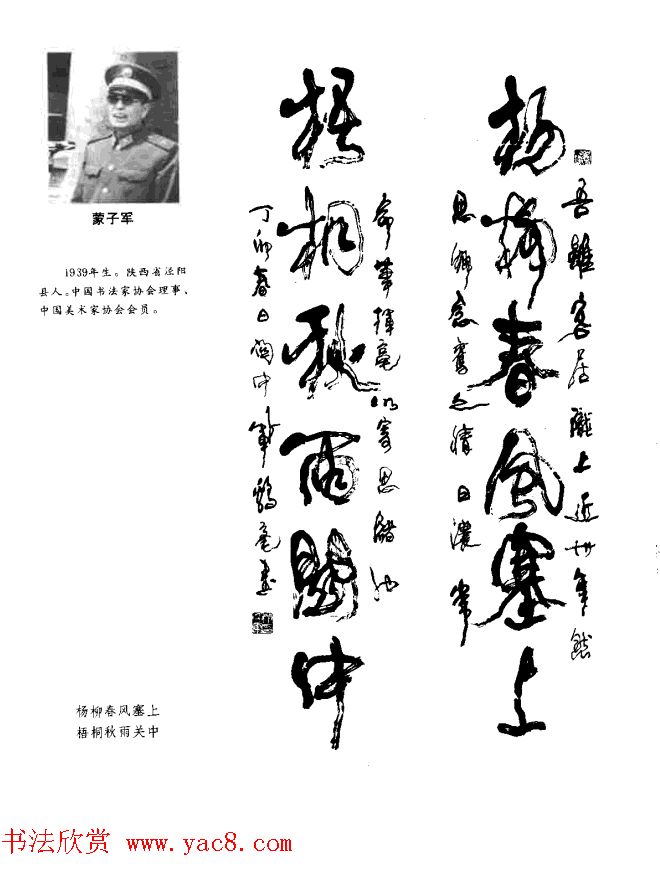 蒙子军
1939年生。陕西省泾阳
县人。中国书法家协会理事、
中国美术家协会会员。
楊柳春風塞上
梧桐秋雨關中
吾雖客居隴上近卅年然
思鄉念舊之情日濃常
命筆揮毫以寄思緒也
丁卯春日關中軍鶴毫書
杨柳春风塞上
梧桐秋雨关中
书法欣赏 www.yac8.com